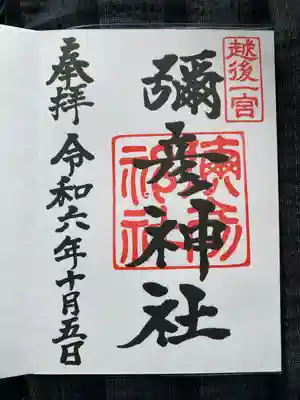 越後一宮
彌彦神社
奉拝
令和六年十月五日